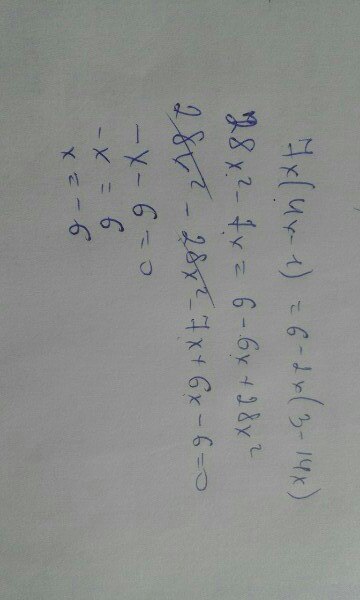 7x(4x-1) = 6-2x(3-14x)
28x² - 7x = 6 - 6x + 28x²
28x² - 28x² - 7x + 6x - 6 = 0
- x - 6 = 0
- x = 6
x = - 6